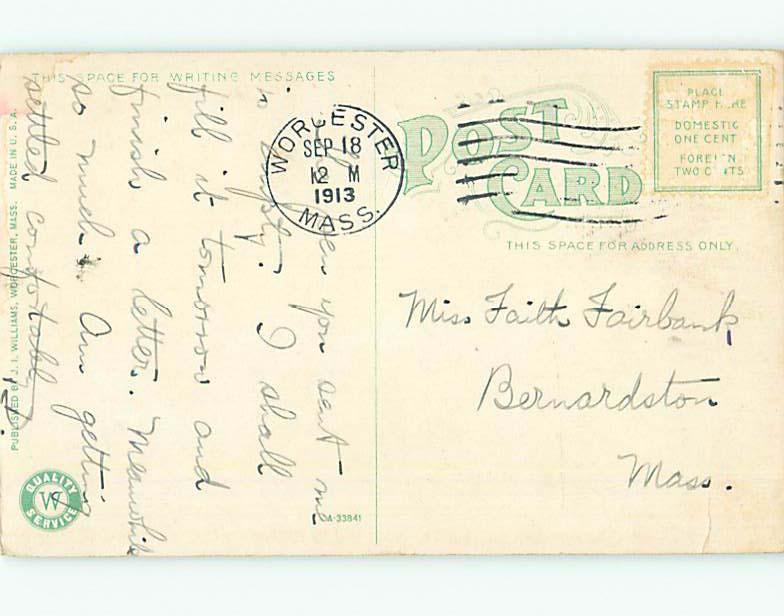 THIS SPACE FOR WRITING MESSAGES
pen you sent me
is empty. I shall
fill it tomorrow and
finish a letter. Meanwhile
so much. Am getting
settled comfortably
WORCESTER
SEP 18
12 M
1913
MASS.
POST
CARD
PLACE
STAMP HERE
DOMESTIC
ONE CENT
FOREIGN
TWO CENTS
THIS SPACE FOR ADDRESS ONLY.
Miss Faith Fairbank
Bernardston
Mass.
PUBLISHED BY J. I. WILLIAMS, WORCESTER, MASS. MADE IN U. S. A.
QUALITY
W
SERVICE
A-33841